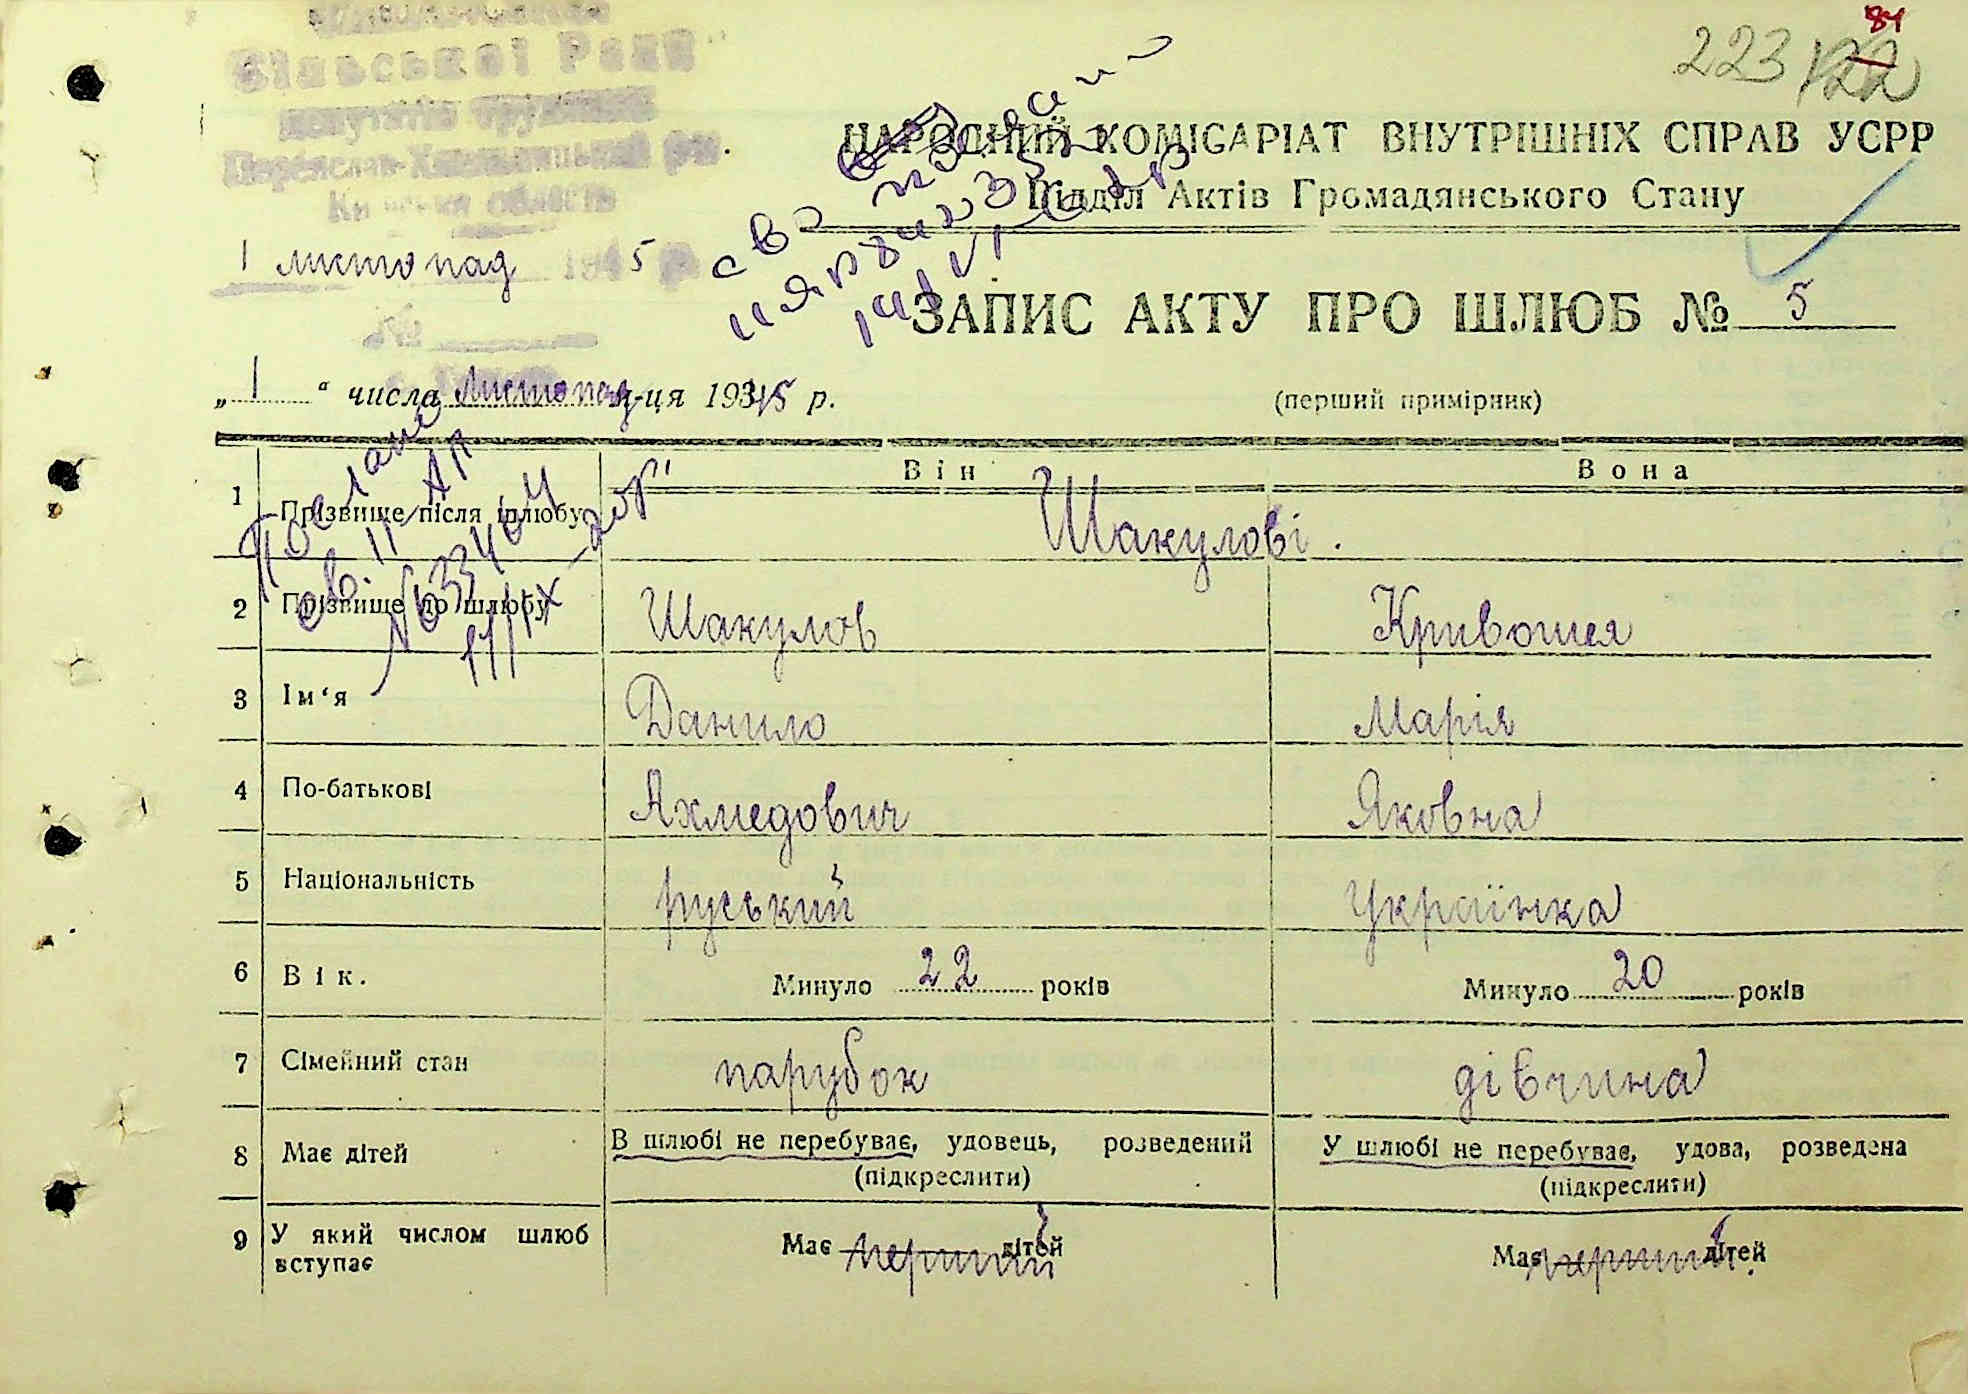 84
223 122
Сільської Ради
депутатів трудящих
Переяслав-Хмельницький р-н.
Київська область
1 листопад 1945 р.
№
НАРОДНИЙ КОМІСАРІАТ ВНУТРІШНІХ СПРАВ УСРР
Відділ Актів Громадянського Стану
ЗАПИС АКТУ ПРО ШЛЮБ № 5
„ 1 “ числа Листопад м-ця 1945 р.
(перший примірник)
Він Вона
1 Прізвище після шлюбу Шакулові.
2 Прізвище до шлюбу Шакулов Кривошея
3 Ім‘я Данило Марія
4 По-батькові Ахмедович Яковна
5 Національність руський Українка
6 Вік. Минуло 22 років Минуло 20 років
7 Сімейний стан парубок дівчина
8 Має дітей В шлюбі не перебуває, удовець, розведений У шлюбі не перебуває, удова, розведена
(підкреслити) (підкреслити)
9 У який числом шлюб вступає Має перший дітей Має перший дітей